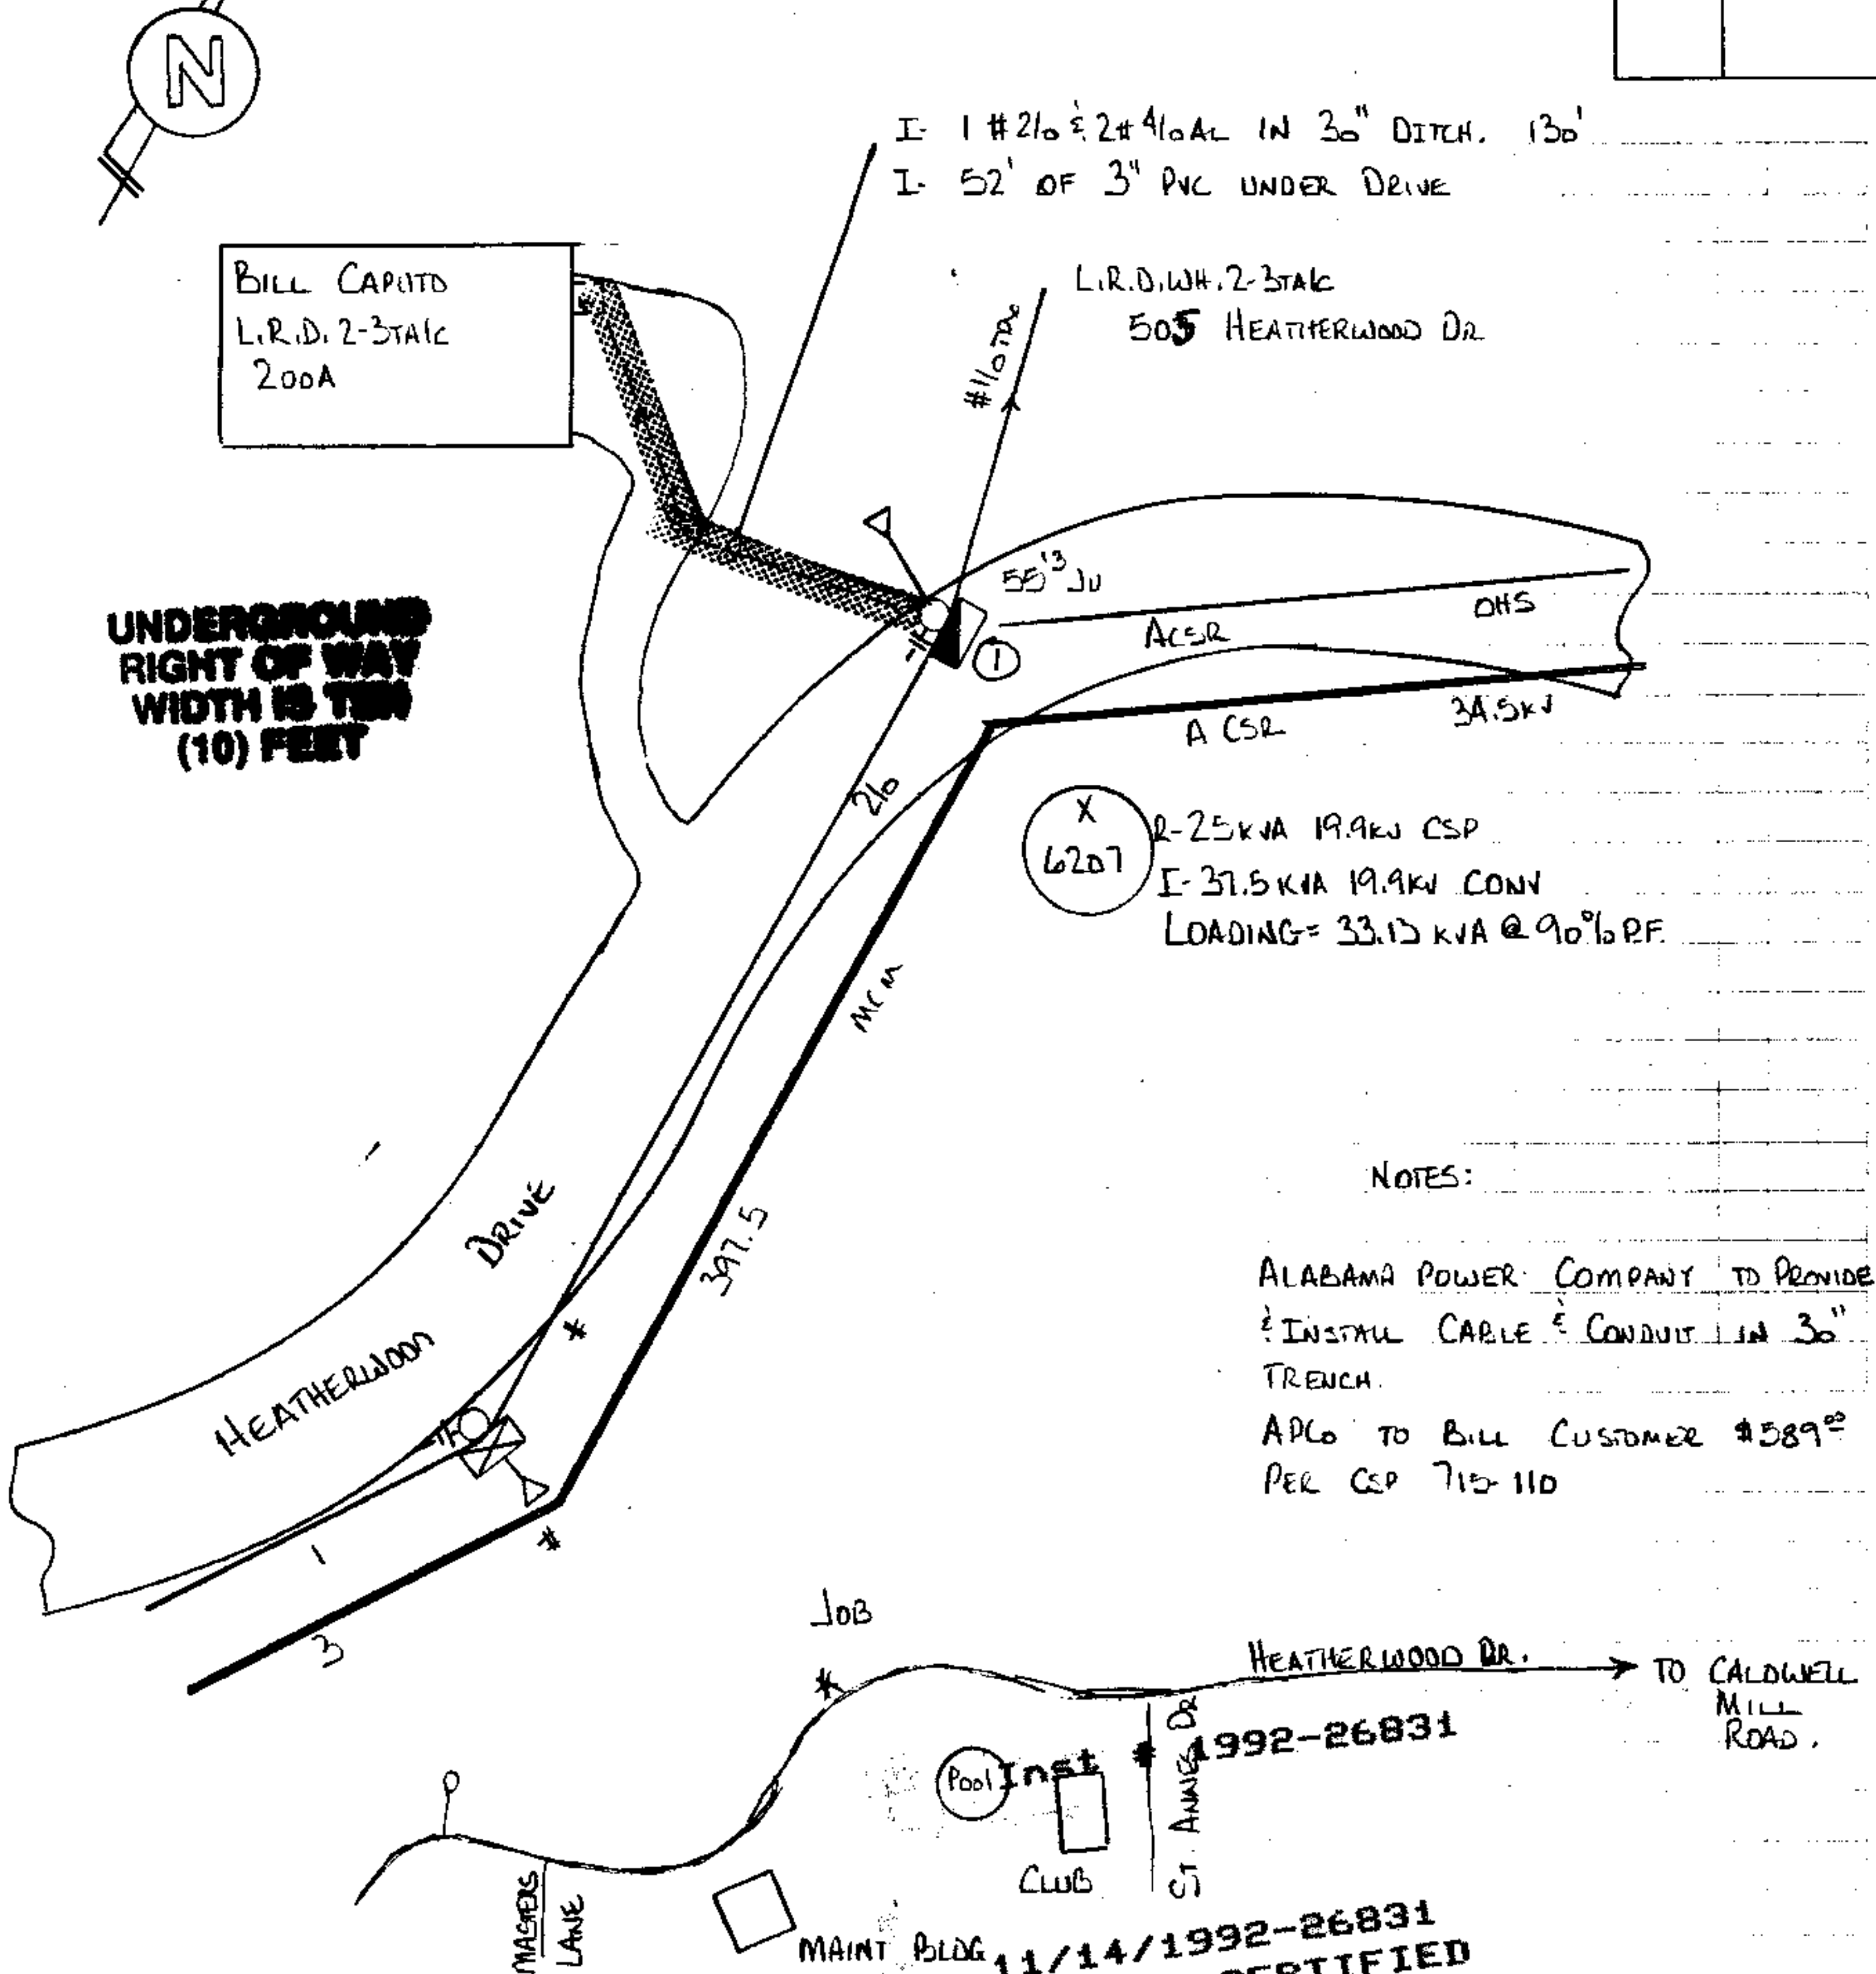 N
I- 1 #2/0 & 2#4/0 AL IN 30" DITCH. 130'
I- 52' OF 3" PVC UNDER DRIVE
BILL CAPUTO
L.R.D. 2-3TA/C
200A
L.R.D.WH. 2-3TA/C
505 HEATHERWOOD DR
UNDERGROUND
RIGHT OF WAY
WIDTH IS TEN
(10) FEET
55'3 JU
1
ACSR
OHS
ACSR
34.5KV
2/0
X
6207
R-25KVA 19.9KV CSP
I-37.5KVA 19.9KV CONV
LOADING= 33.13 KVA @ 90% P.F.
MCM
397.5
HEATHERWOOD DRIVE
1
3
NOTES:
ALABAMA POWER COMPANY TO PROVIDE
& INSTALL CABLE & CONDUIT IN 30"
TRENCH.
APCO TO BILL CUSTOMER $589.00
PER CSP 715-110
JOB
HEATHERWOOD DR.
TO CALDWELL
MILL
ROAD.
ST. ANNES DR
POOL
Inst # 1992-26831
CLUB
MASTERS
LANE
MAINT BLDG
11/14/1992-26831
CERTIFIED